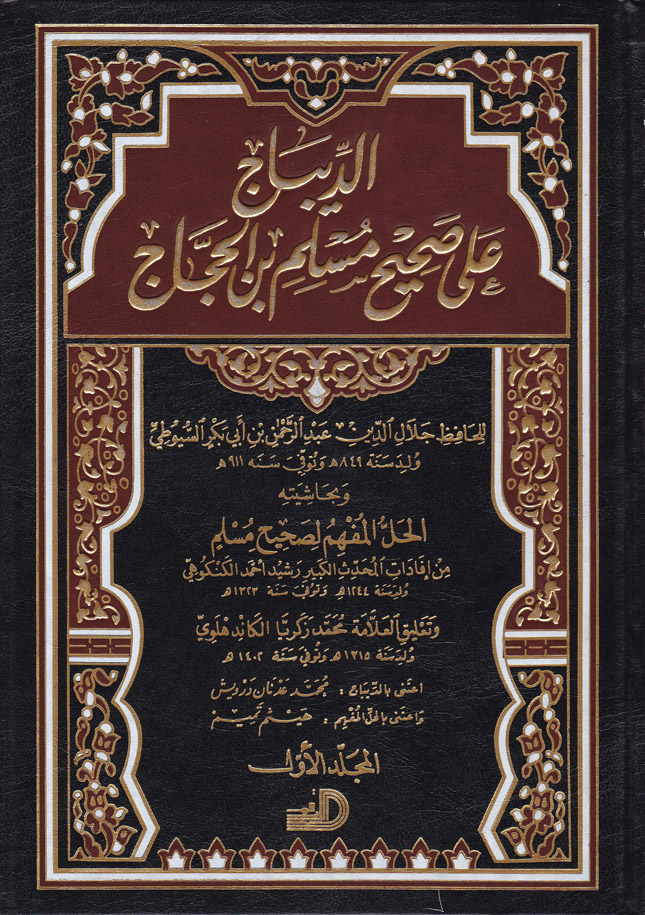 الدِّيبَاج
عَلَى صَحِيْح مُسْلِمِ بْنِ الحَجَّاج
للحَافِظ جَلَال الدِّين عَبْد الرَّحْمٰن بْن أَبِي بَكْرٍ السُّيُوطِيِّ
وُلِدَ سَنَة ٨٤٩هـ وَتُوُفِّيَ سَنَة ٩١١هـ
وَبِحَاشِيَتِهِ
الحَلُّ المُفْهِمُ لِصَحِيْح مُسْلِم
مِنْ إِفَادَاتِ المُحَدِّث الكَبِير رَشِيْد أَحْمَد الكَنْكُوهِيّ
وُلِدَ سَنَة ١٢٤٤هـ وَتُوُفِّيَ سَنَة ١٣٢٣هـ
وَتَعْلِيق العَلَّامَة مُحَمَّد زَكَرِيَّا الكَانْدِهْلَوِيّ
وُلِدَ سَنَة ١٣١٥هـ وَتُوُفِّيَ سَنَة ١٤٠٢هـ
اعتَنى بالدِّيبَاج : مُحَمَّد عَدْنَان دَرْوِيش
وَاعتَنى بالحَلِّ المُفْهِم : هَيْثَم تَمِيم
المجَلّد الأوّل